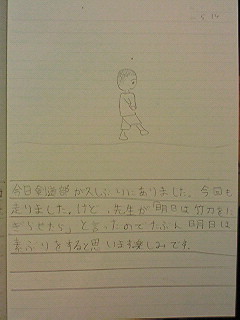 今日剣道部が久しぶりにありました。今回も
走りました。けど、先生が「明日は竹刀をに
ぎらせたる」と言ったのでたぶん明日は
素ぶりをすると思いる楽しみです